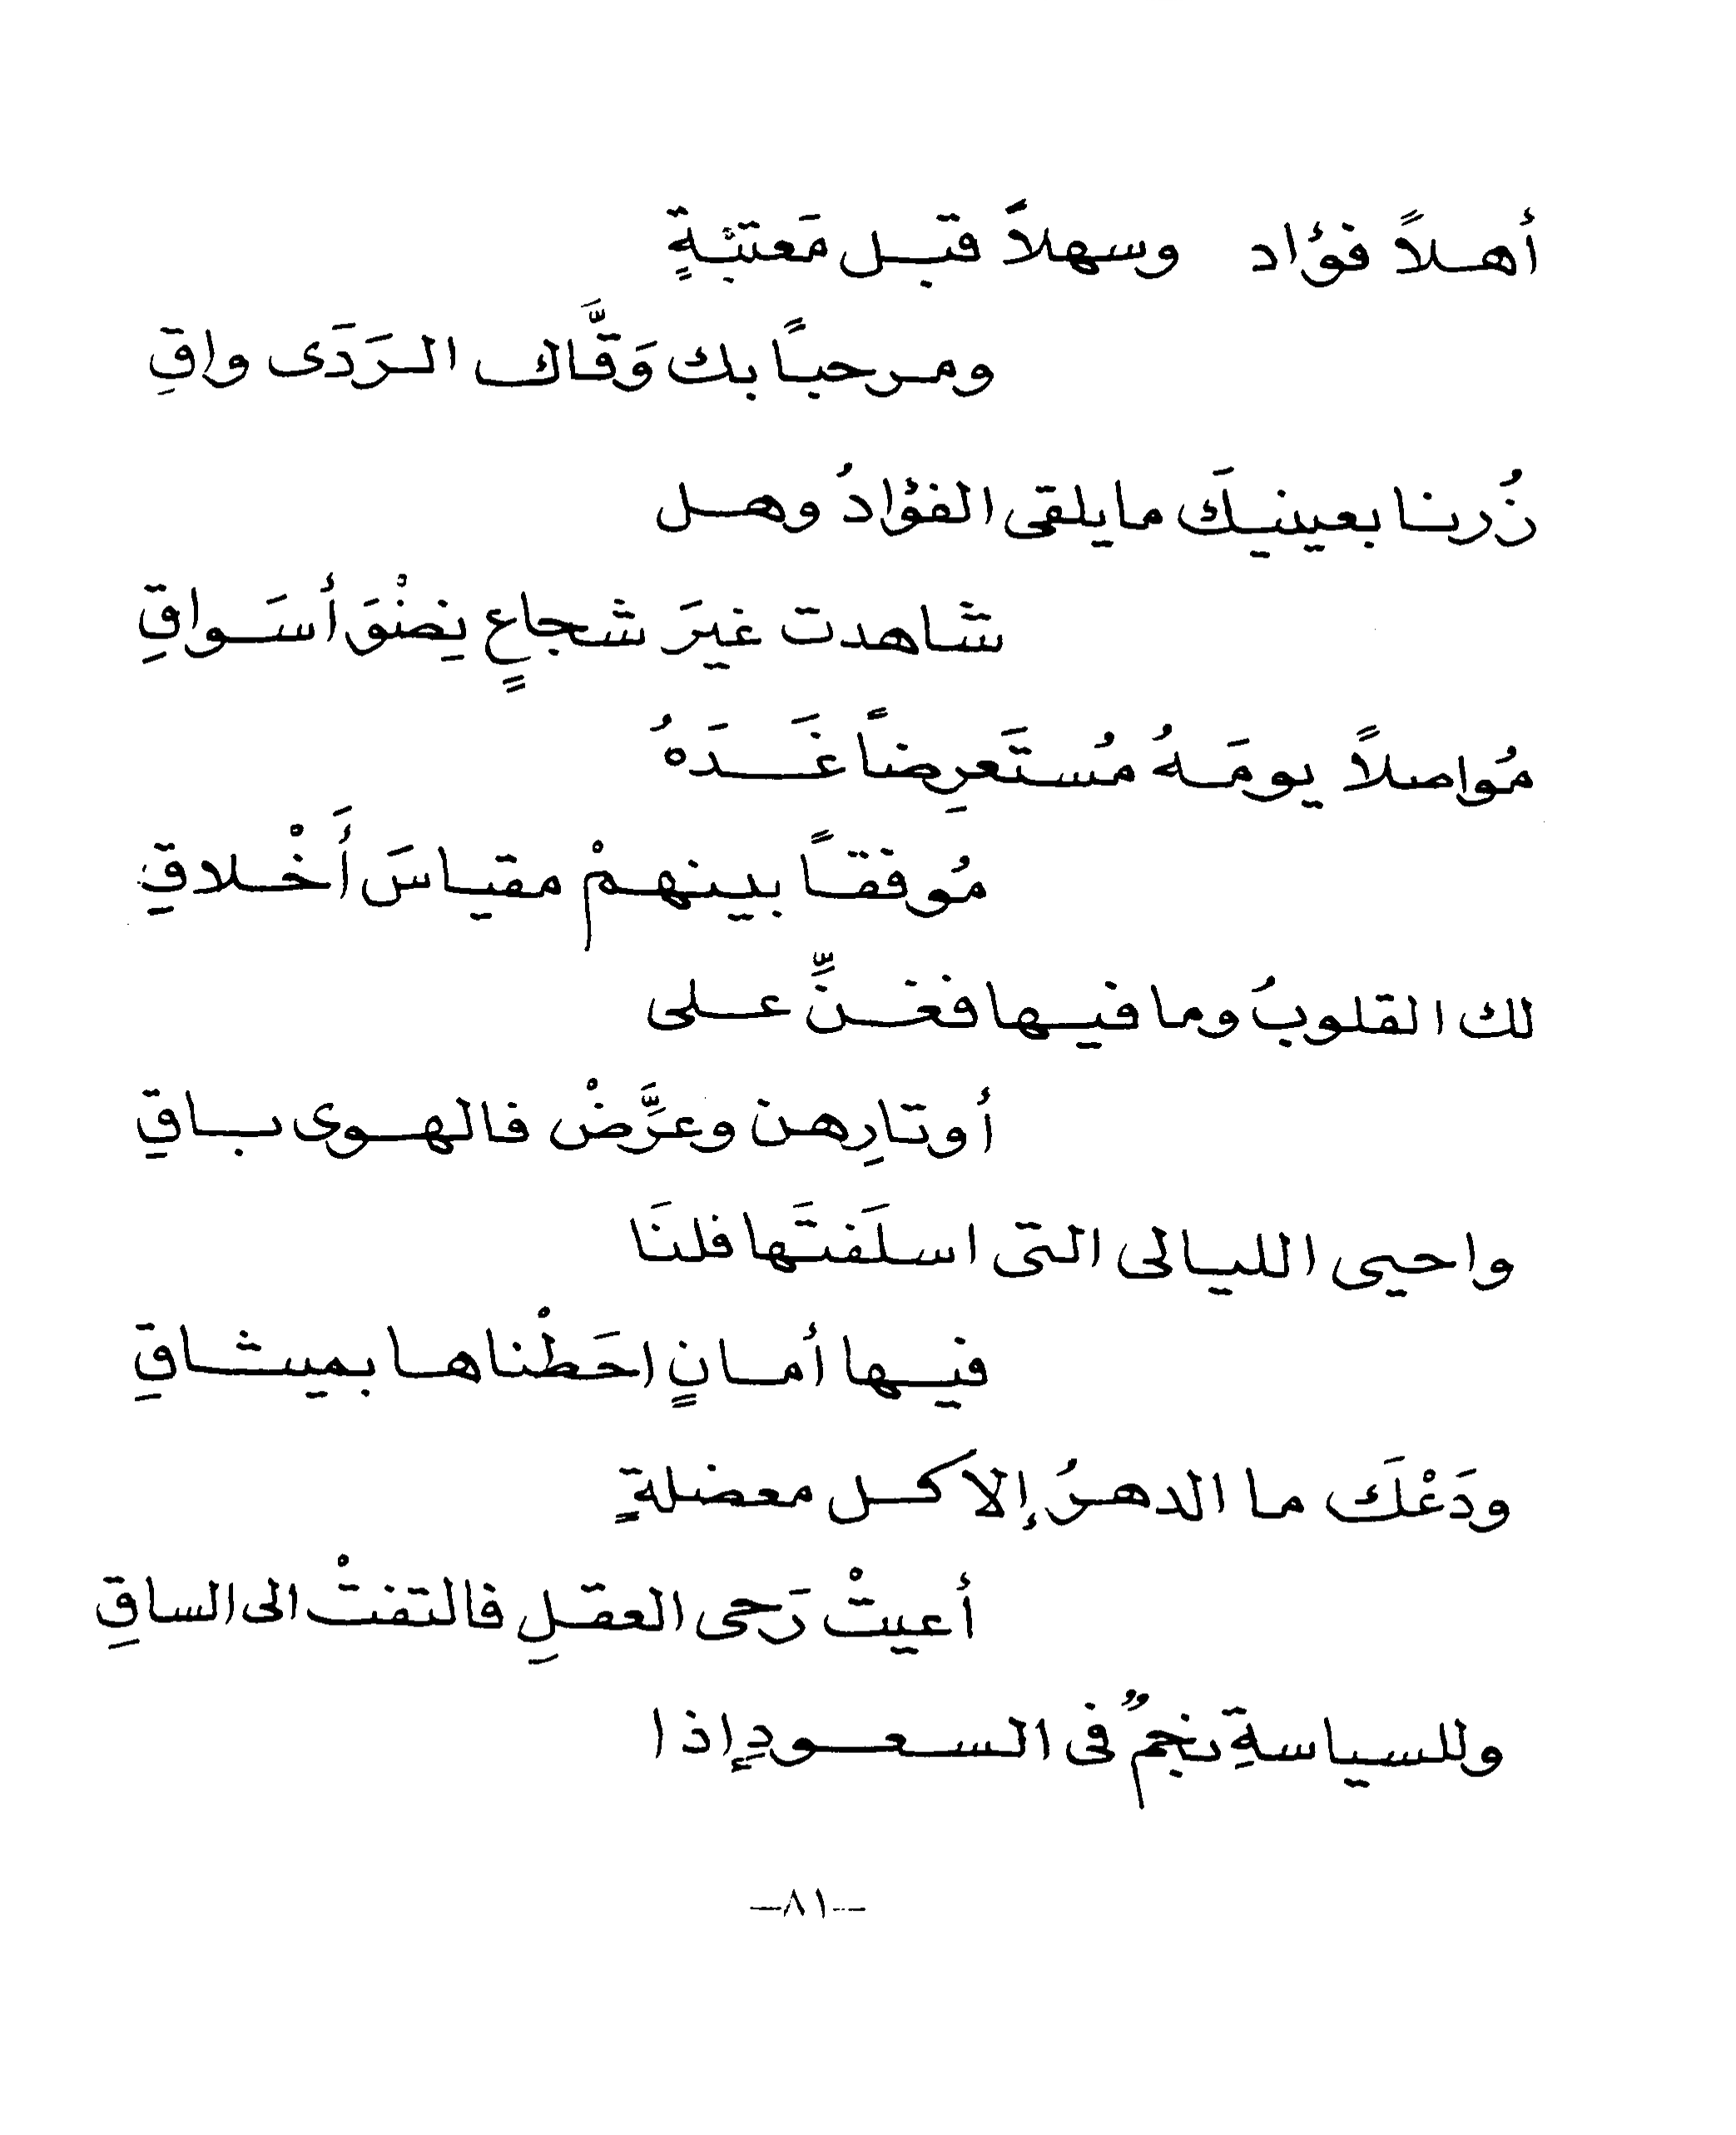 أهلاً فؤاد وسهلاً قبل مَعتبةٍ
ومرحباً بك وَقَّاك الرَدَى واقِ
زُرنا بعينيكَ ما يلقى الفؤادُ وهل
شاهدت غيرَ شجاعٍ بِضنْوَ أسَواقِ
مُواصلاً يومَهُ مُستَعرِضاً غَدَهُ
مُوفقاً بينهمْ مقياسَ أَخْلاقِ
لك القلوبُ وما فيها فغنِّ على
أوتارِهن وعرَّضْ فالهوى باقِ
واحيى الليالى التى اسلَفتَها فلنَا
فيها أمانٍ احَطْناها بميثاقِ
ودَعْكَ ما الدهرُ إلا كل معضلةٍ
أعيتْ رَحى العقلِ فالتفتْ الى الساقِ
وللسياسةِ نجمٌ فى السعودِ إذا
—٨١—